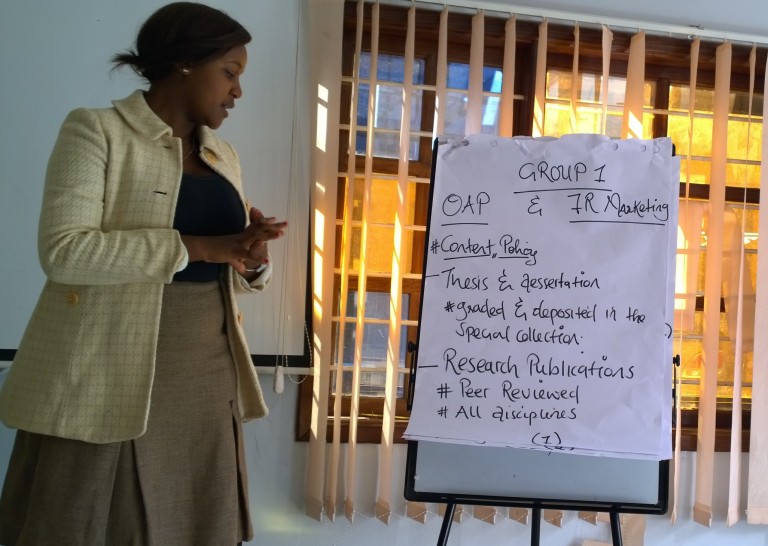 GROUP 1
OAP & IR Marketing
# Content Policy
— Thesis & dessertation
# graded & deposited in the
Special collection.
— Research Publications
# Peer Reviewed
# All disciplines
(1)